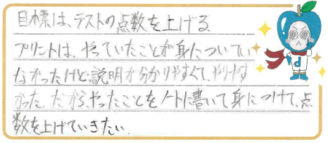 目標は、テストの点数を上げる。
プリントは、やっていたことが身についてい
なかったけど説明が分かりやすくて、やりやす
かった。だから、やったことをノートに書いて身につけて、点
数を上げていきたい。